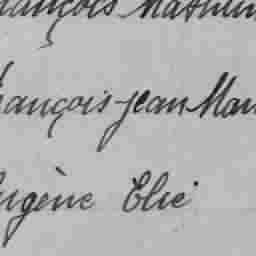 François Mathurin
François-jean Mar
Eugène Elie